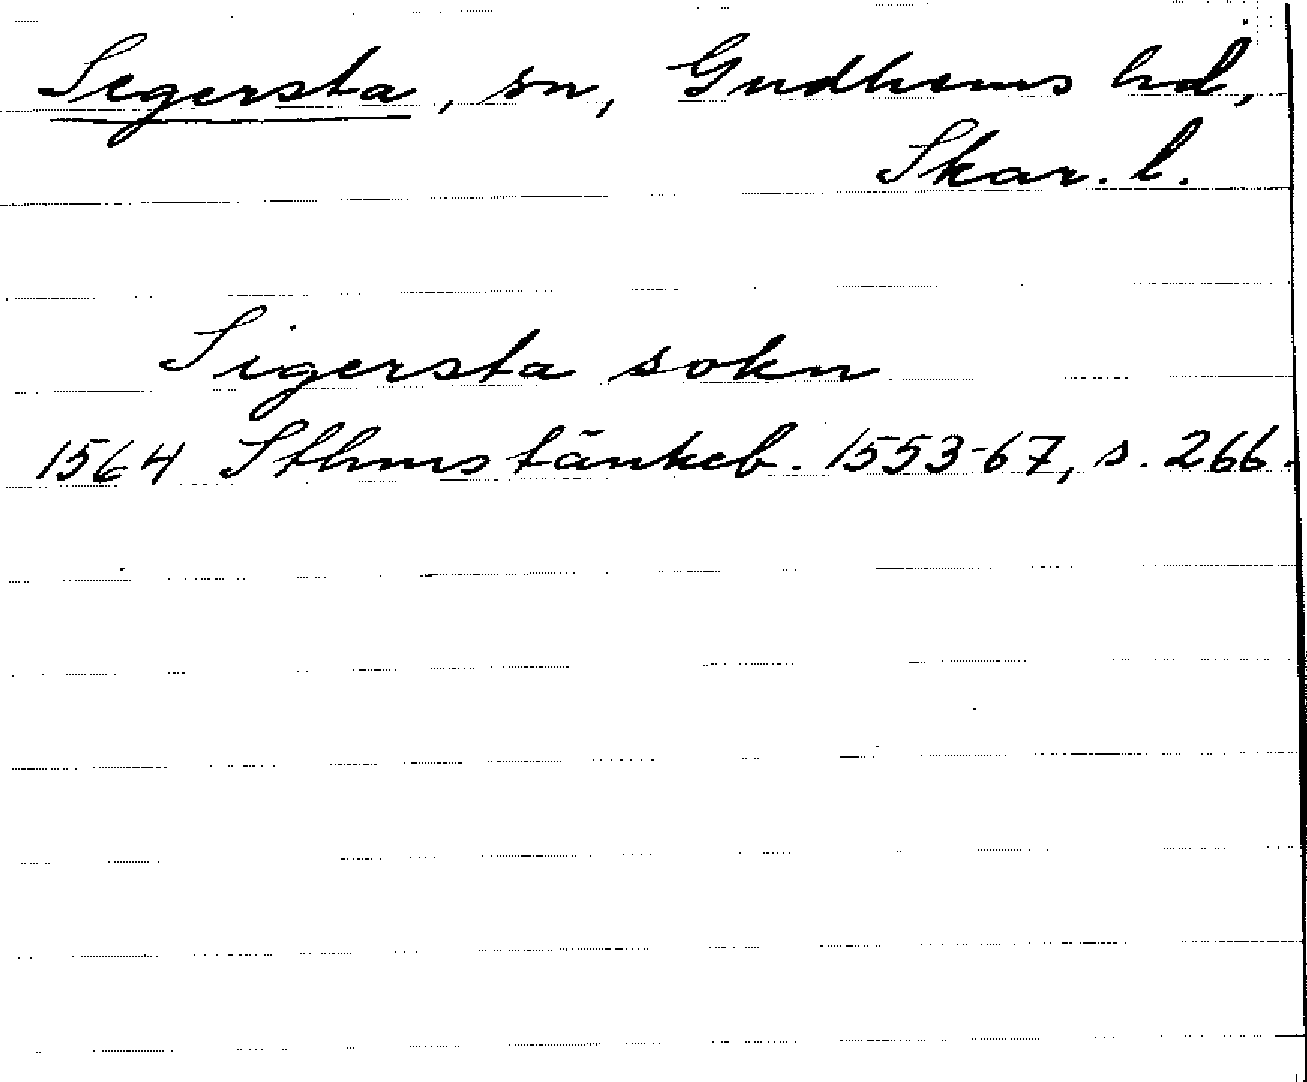 Segersta, sn, Gudhems hd,
Skar. l.
Sigersta sokn
1564 Sthms tänkeb. 1553-67, s. 266.